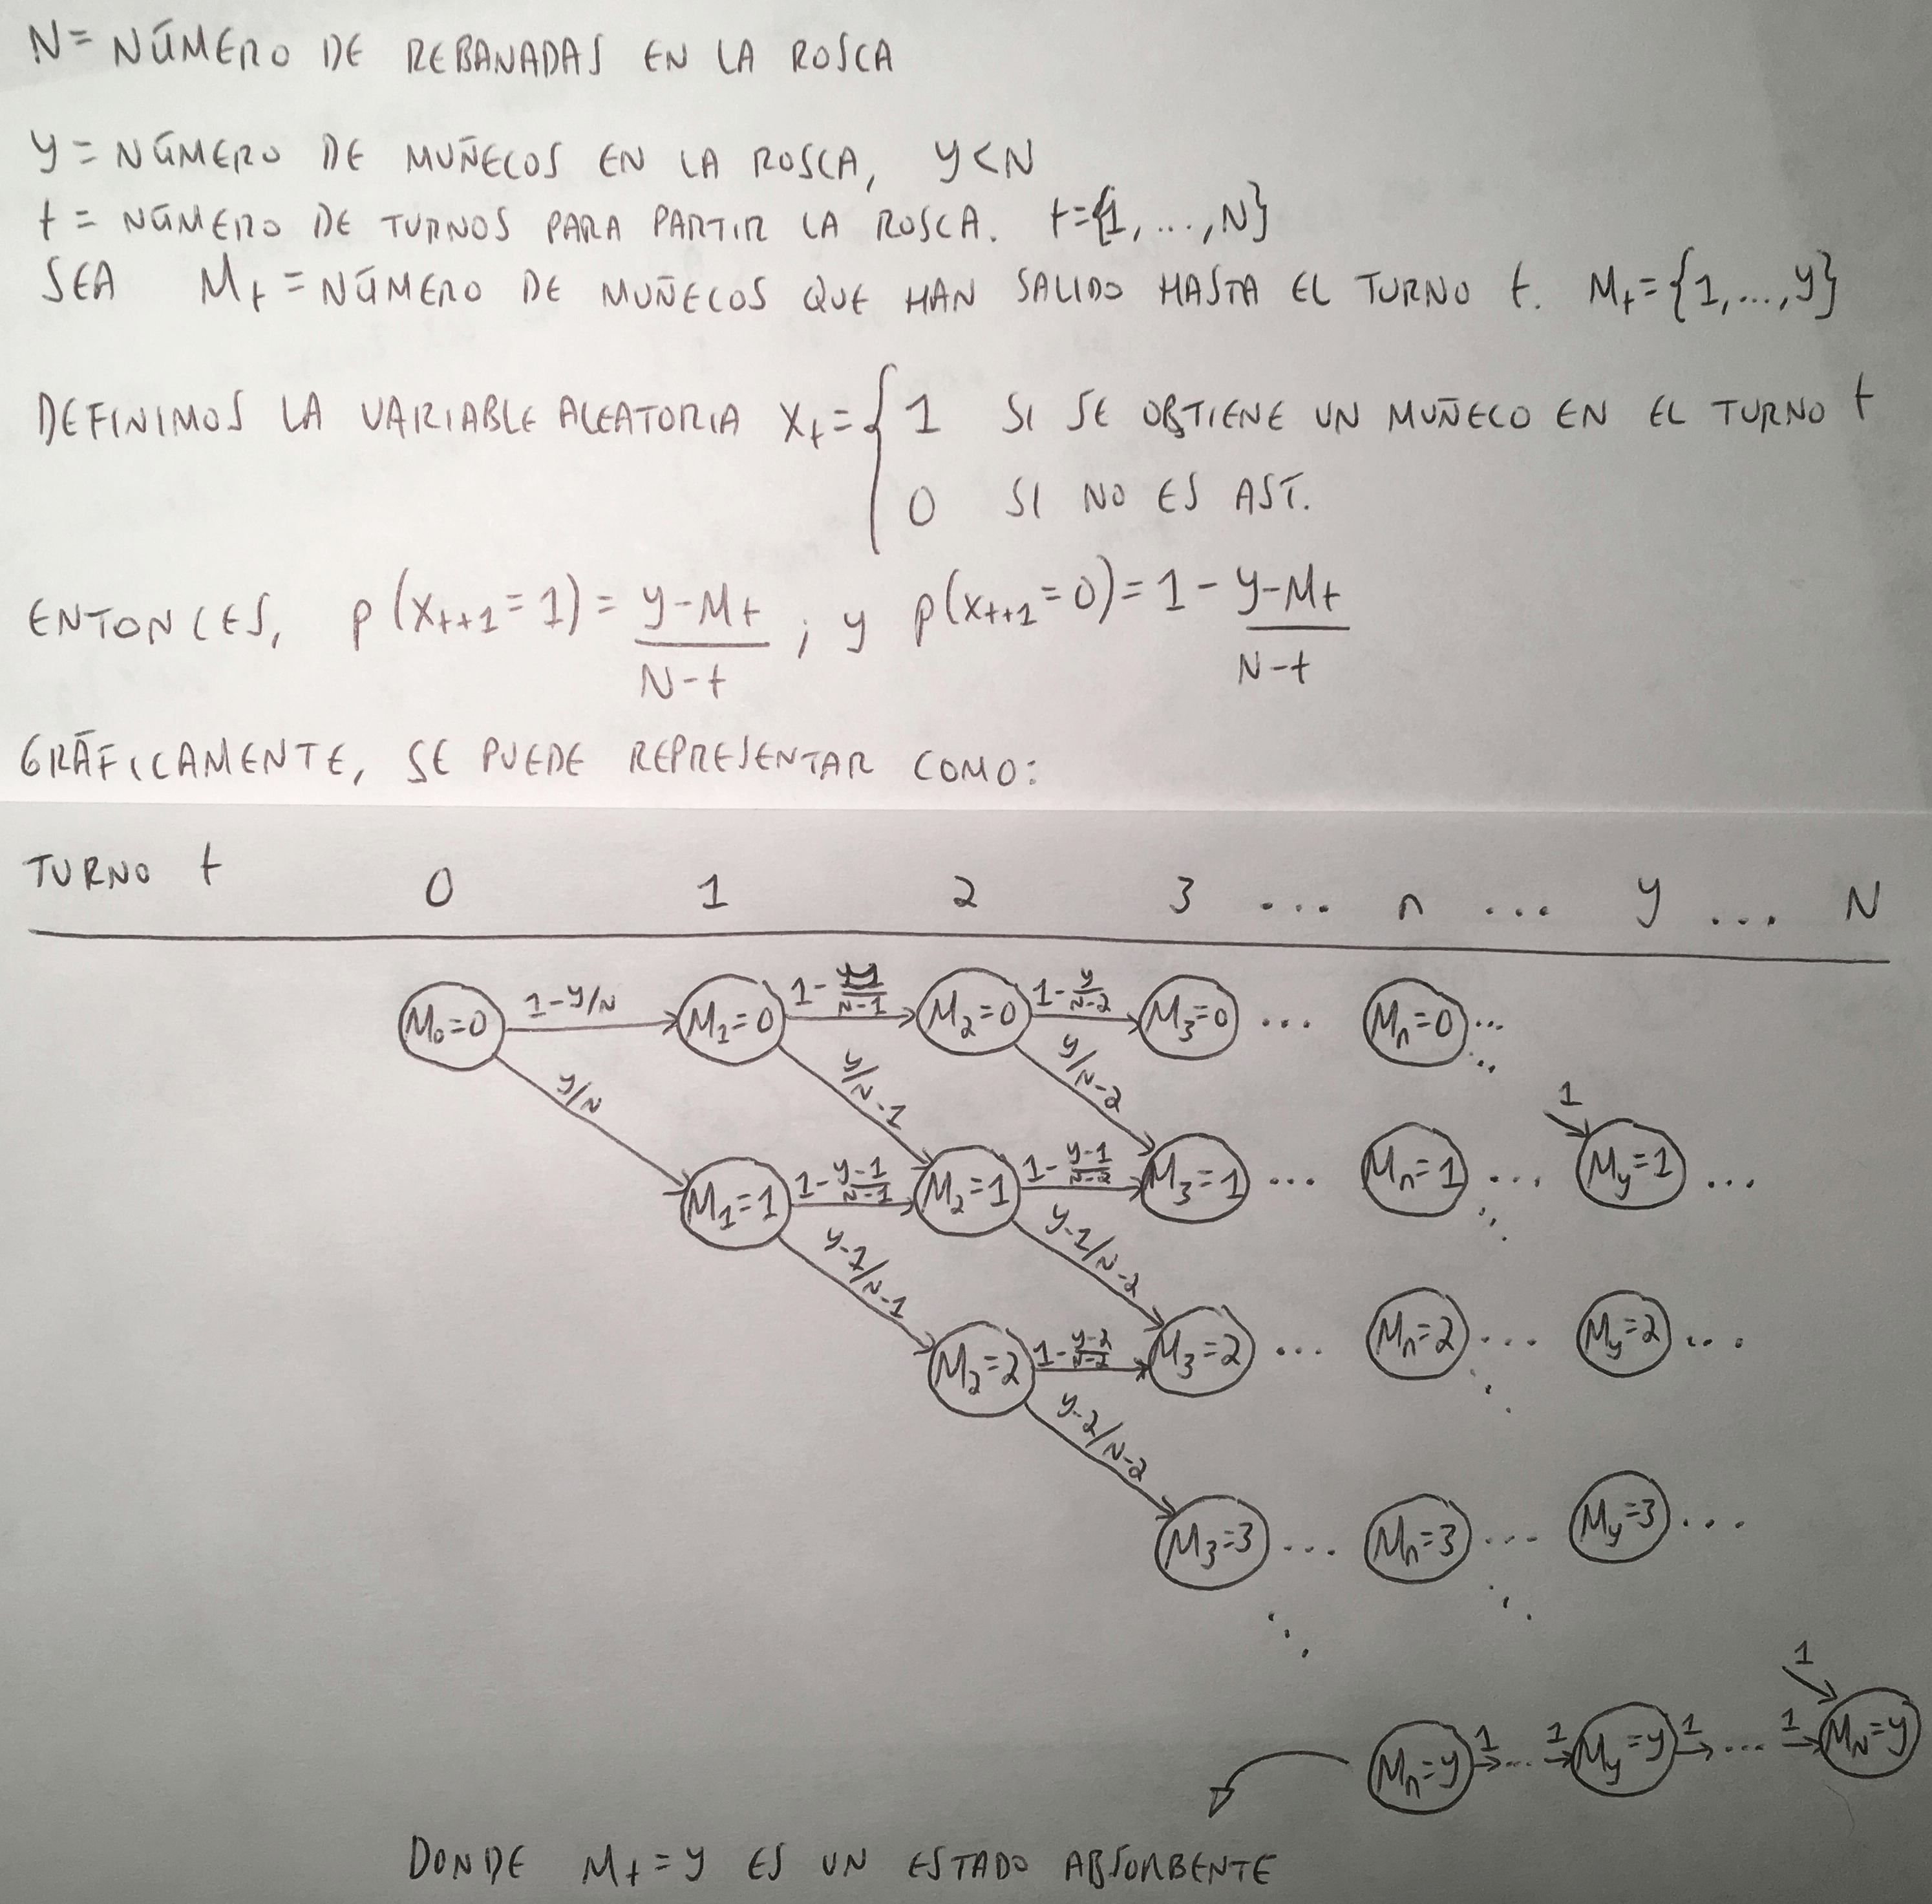 N = NÚMERO DE REBANADAS EN LA ROSCA
y = NÚMERO DE MUÑECOS EN LA ROSCA, y < N
t = NÚMERO DE TURNOS PARA PARTIR LA ROSCA. t={1,...,N}
SEA M_t = NÚMERO DE MUÑECOS QUE HAN SALIDO HASTA EL TURNO t. M_t={1,...,y}
DEFINIMOS LA VARIABLE ALEATORIA X_t = { 1 SI SE OBTIENE UN MUÑECO EN EL TURNO t
0 SI NO ES ASÍ.
ENTONCES, p(X_{t+1}=1) = (y-M_t)/(N-t) ; y p(X_{t+1}=0) = 1 - (y-M_t)/(N-t)
GRÁFICAMENTE, SE PUEDE REPRESENTAR COMO:
TURNO t 0 1 2 3 ... n ... y ... N
M_0=0 1-y/N M_1=0 1- /N-1 M_2=0 1-y/N-2 M_3=0 ... M_n=0 ...
y/N y/N-1 y/N-2 1
M_1=1 1-y-1/N-1 M_2=1 1-y-1/N-2 M_3=1 ... M_n=1 ... M_y=1 ...
y-1/N-1 y-1/N-2
M_2=2 1-y-2/N-2 M_3=2 ... M_n=2 ... M_y=2 ...
y-2/N-2
M_3=3 ... M_n=3 ... M_y=3 ...
1
M_n=y 1 ... 1 M_y=y 1 ... 1 M_N=y
DONDE M_t=y ES UN ESTADO ABSORBENTE